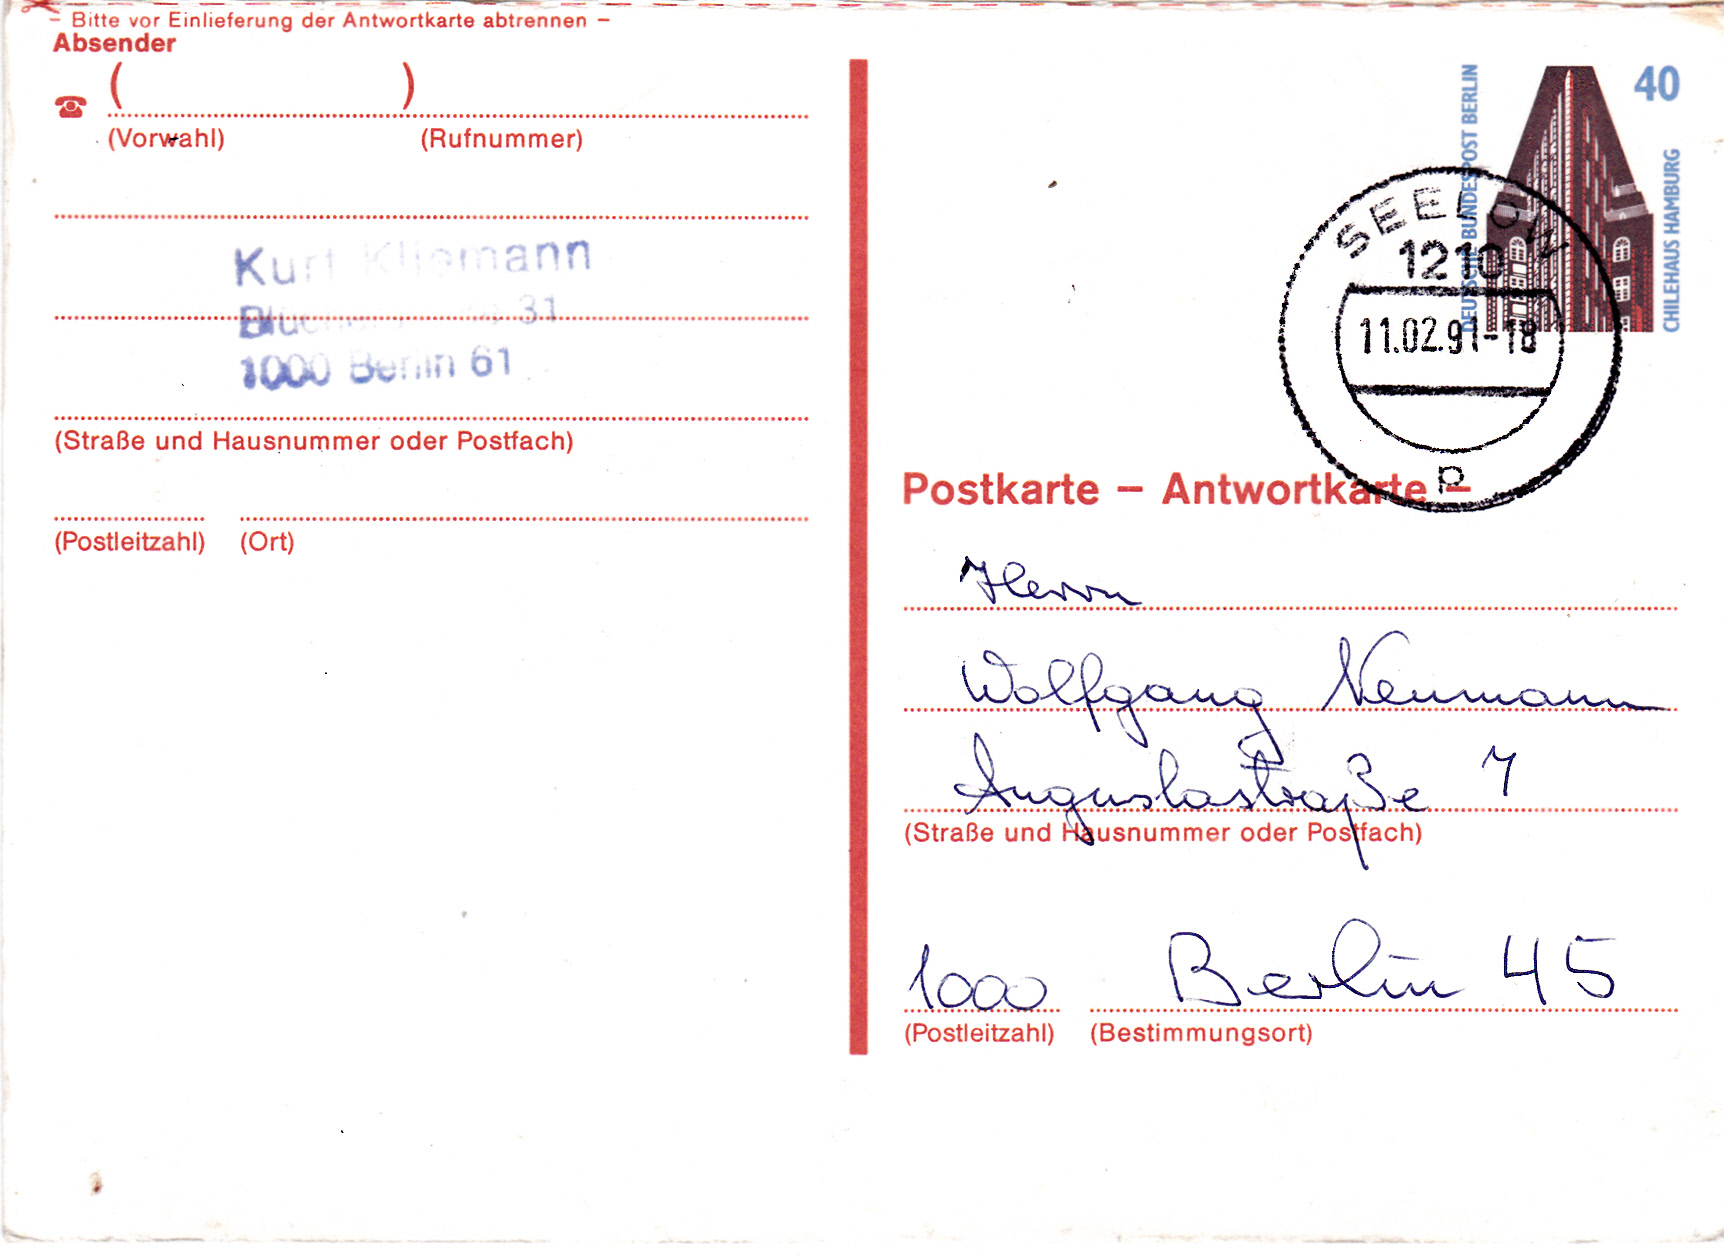 – Bitte vor Einlieferung der Antwortkarte abtrennen –
Absender
( )
(Vorwahl) (Rufnummer)
Kurt Kliemann
31
1000 Berlin 61
(Straße und Hausnummer oder Postfach)
(Postleitzahl) (Ort)
DEUTSCHE BUNDESPOST BERLIN
40
CHILEHAUS HAMBURG
SEELOW
1210
11.02.91-18
p
Postkarte – Antwortkarte –
Herrn
Wolfgang Neumann
Augustastraße 7
(Straße und Hausnummer oder Postfach)
1000 Berlin 45
(Postleitzahl) (Bestimmungsort)